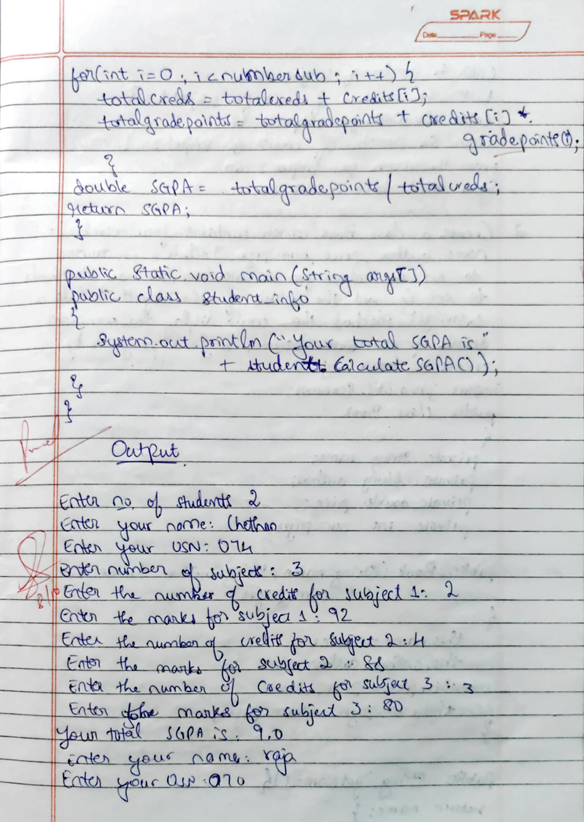 SPARK
Date Page
for(int i=0 ; i<numbersub ; i++) {
totalcreds = totalcreds + credits[i];
totalgradepoints = totalgradepoints + credits[i] *
gradepoints(i);
}
double SGPA = totalgradepoints / totalcreds;
return SGPA;
}
public static void main (String args[])
public class student info
{
System.out.println ("Your total SGPA is"
+ student Calculate SGPA() );
}
}
Output
Enter no. of students 2
Enter your name: Chethan
Enter your USN: 074
Enter number of subjects : 3
Enter the number of credits for subject 1: 2
Enter the marks for subject 1 : 92
Enter the number of credits for subject 2 : 4
Enter the marks for subject 2 : 88
Enter the number of credits for subject 3 : 3
Enter the marks for subject 3 : 80
Your total SGPA is : 9.0
Enter your name: raja
Enter your USN : 070